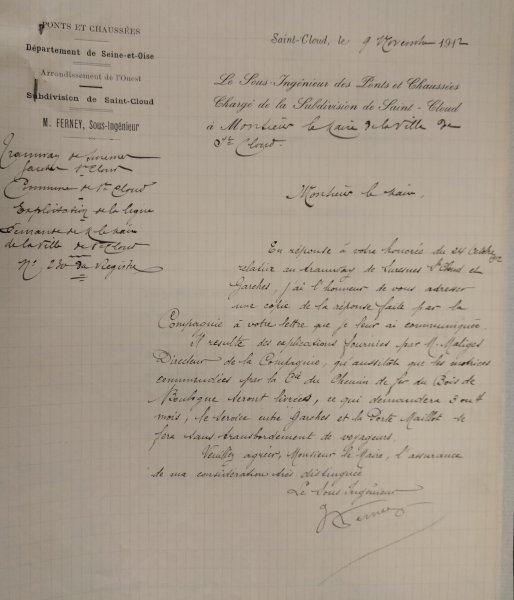 PONTS ET CHAUSSÉES
Département de Seine-et-Oise
Arrondissement de l'Ouest
Subdivision de Saint-Cloud
M. FERNEY, Sous-Ingénieur
Tramway de Suresnes
Garches St Cloud
Commune de St Cloud
Exploitation de la ligne
Demande de M. le Maire
de la Ville de St Cloud
No 230 du Registre
Saint-Cloud, le 9 Novembre 1912
Le Sous-Ingénieur des Ponts et Chaussées
Chargé de la Subdivision de Saint-Cloud
à Monsieur le Maire de la Ville de
St Cloud.
Monsieur le Maire,
En réponse à votre honorée du 24 Octobre
relative au tramway de Suresnes St Cloud et
Garches, j'ai l'honneur de vous adresser
une copie de la réponse faite par la
Compagnie à votre lettre que je leur ai communiquée.
Il résulte des explications fournies par M.
Directeur de la Compagnie, qu'aussitôt que les motrices
commandées par la Cie du Chemin de fer du Bois de
Boulogne seront livrées, ce qui demandera 3 ou 4
mois, le service entre Garches et la Porte Maillot se
fera sans transbordement de voyageurs.
Veuillez agréer, Monsieur le Maire, l'assurance
de ma considération très distinguée
Le Sous Ingénieur
Ferney